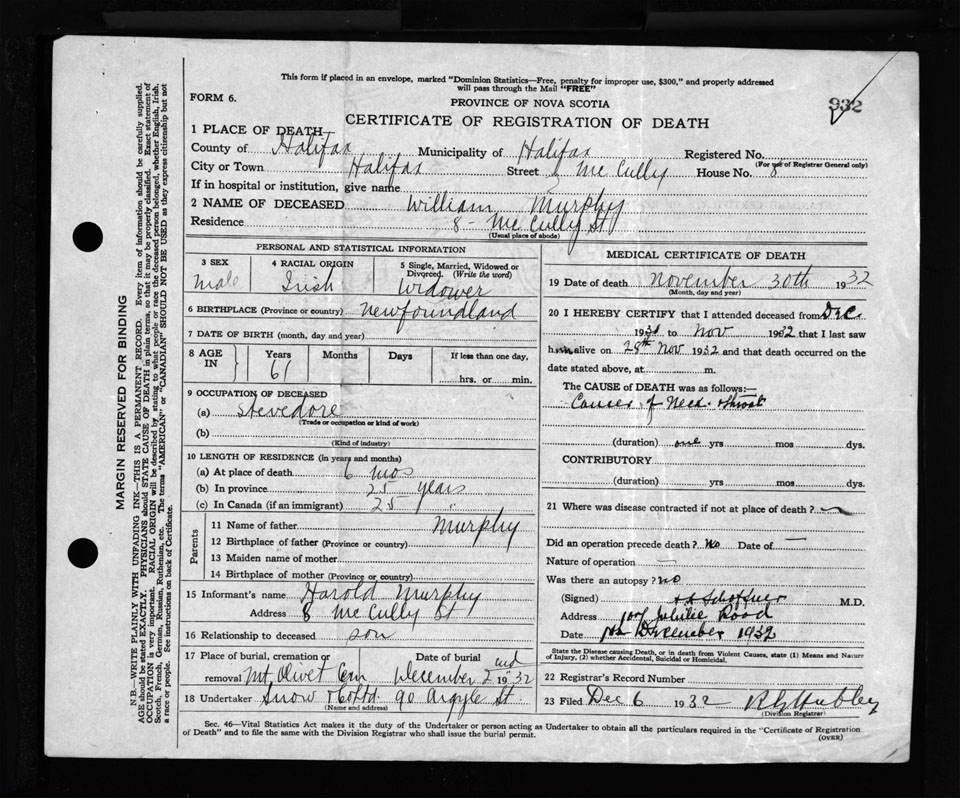 This form if placed in an envelope, marked "Dominion Statistics—Free, penalty for improper use, $300," and properly addressed
will pass through the Mail "FREE"
FORM 6.
PROVINCE OF NOVA SCOTIA
932
CERTIFICATE OF REGISTRATION OF DEATH
1 PLACE OF DEATH
County of Halifax Municipality of Halifax Registered No.
(For use of Registrar General only)
City or Town Halifax Street McCully House No. 8
If in hospital or institution, give name
2 NAME OF DECEASED William Murphy
Residence 8 - McCully St
(Usual place of abode)
PERSONAL AND STATISTICAL INFORMATION
3 SEX 4 RACIAL ORIGIN 5 Single, Married, Widowed or
Divorced. (Write the word)
Male Irish Widower
6 BIRTHPLACE (Province or country) Newfoundland
7 DATE OF BIRTH (month, day and year)
8 AGE IN Years Months Days If less than one day,
61 hrs. or min.
9 OCCUPATION OF DECEASED
(a) Stevedore
(Trade or occupation or kind of work)
(b)
(Kind of industry)
10 LENGTH OF RESIDENCE (in years and months)
(a) At place of death 6 mos
(b) In province 25 years
(c) In Canada (if an immigrant) 25 "
Parents
11 Name of father Murphy
12 Birthplace of father (Province or country)
13 Maiden name of mother
14 Birthplace of mother (Province or country)
15 Informant's name Harold Murphy
Address 8 McCully St
16 Relationship to deceased son
17 Place of burial, cremation or Date of burial
removal Mt. Olivet Cem December 2nd 1932
18 Undertaker Snow & Co Ltd. 90 Argyle St
(Name and address)
MEDICAL CERTIFICATE OF DEATH
19 Date of death November 30th 1932
(Month, day and year)
20 I HEREBY CERTIFY that I attended deceased from Dec.
1931 to Nov 1932 that I last saw
him alive on 28th Nov 1932 and that death occurred on the
date stated above, at m.
The CAUSE of DEATH was as follows:—
of throat
(duration) one yrs mos dys.
CONTRIBUTORY
(duration) yrs mos dys.
21 Where was disease contracted if not at place of death?
Did an operation precede death? No Date of —
Nature of operation —
Was there an autopsy? no
(Signed) M.D.
Address Road
Date December 1932
State the Disease causing Death, or in death from Violent Causes, state (1) Means and Nature
of Injury, (2) whether Accidental, Suicidal or Homicidal.
22 Registrar's Record Number
23 Filed Dec 6 1932
(Division Registrar)
Sec. 46—Vital Statistics Act makes it the duty of the Undertaker or person acting as Undertaker to obtain all the particulars required in the "Certificate of Registration
of Death" and to file the same with the Division Registrar who shall issue the burial permit.
(OVER)
MARGIN RESERVED FOR BINDING
N.B.—WRITE PLAINLY WITH UNFADING INK—THIS IS A PERMANENT RECORD. Every item of information should be carefully supplied.
AGE should be stated EXACTLY. PHYSICIANS should STATE CAUSE OF DEATH in plain terms, so that it may be properly classified. Exact statement of
OCCUPATION is very important. RACIAL ORIGIN will be described by stating to what people or race the deceased person belonged, whether English, Irish,
Scotch, French, German, Russian, Ruthenian, etc. The terms "AMERICAN" or "CANADIAN" SHOULD NOT BE USED as they express citizenship but not
a race or people. See instructions on back of Certificate.